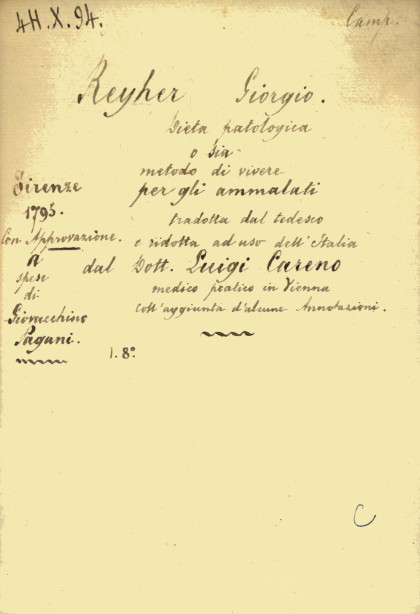 4H.X.94.
Camp.
Reyher Giorgio.
Dieta patologica
o sia
metodo di vivere
per gli ammalati
tradotta dal tedesco
e ridotta ad uso dell'Italia
dal Dott. Luigi Careno
medico pratico in Vienna
Coll'aggiunta d'alcune Annotazioni.
Firenze
1795.
Con Approvazione.
A
spese
di
Giovacchino
Pagani.
1. 8º
C